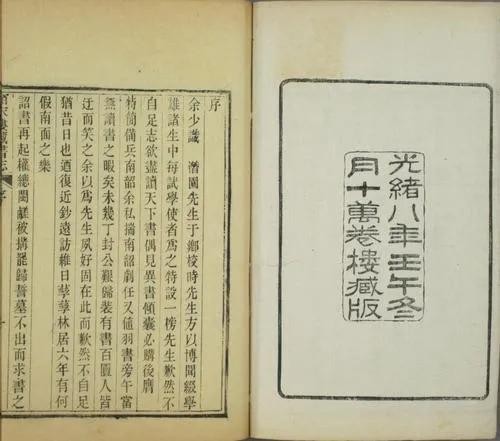 光緒八年壬午冬
月十萬卷樓藏版
序
余少識 潛園先生于鄉校時先生方以博聞綴學
雄諸生中每試學使者爲之特設一榜先生歉然不
自足志欲盡讀天下書偶見異書傾囊必購後膺
特簡備兵南韶余私揣南韶劇任又値羽書旁午當
無讀書之暇矣未幾丁封公艱歸裝有書百匱人皆
迂而笑之余以爲先生夙好固在此而歉然不自足
猶昔日也迺復近鈔遠訪維日孳孳林居六年有何
假南面之樂
詔書再起權總閩鹺被搆罷歸誓墓不出而求書之
宋樓藏書志 序